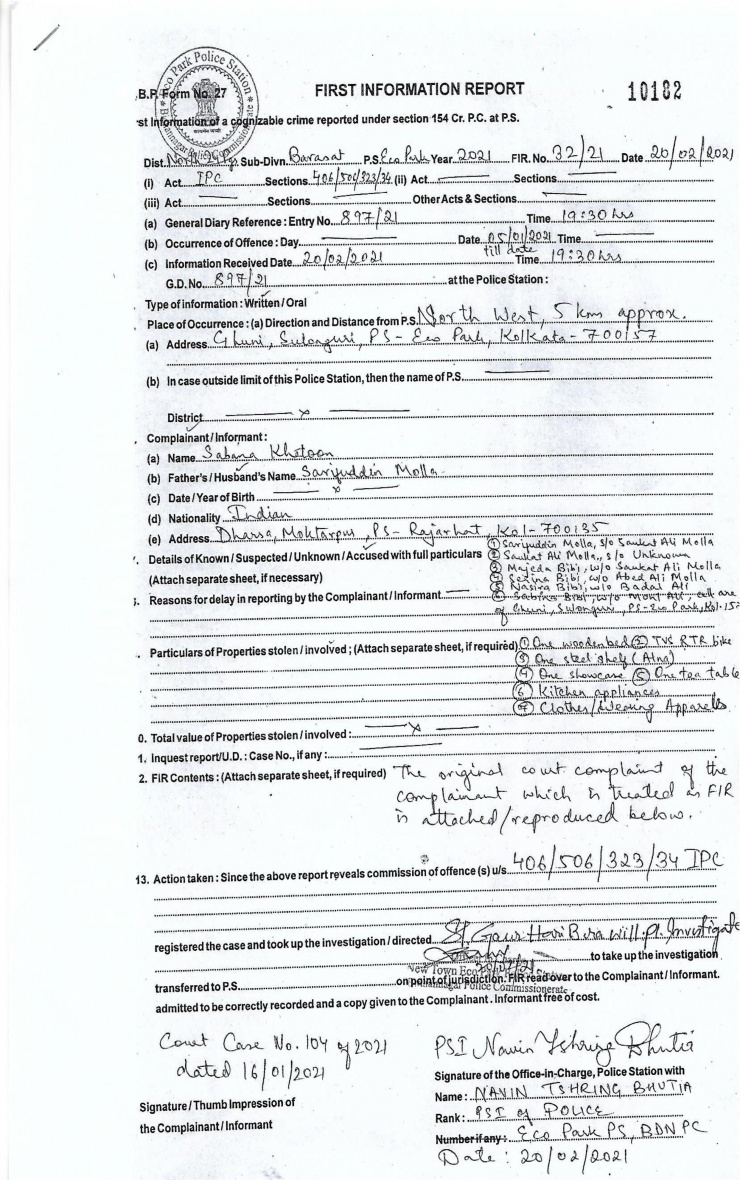 Eco Park Police Station
Bidhannagar Police Commissionerate
B.P. Form No. 27
FIRST INFORMATION REPORT
10182
st Information of a cognizable crime reported under section 154 Cr. P.C. at P.S.
Dist. North 24 Pgs. Sub-Divn. Barasat P.S. Eco Park Year 2021 FIR. No. 32/21 Date 20/02/2021
(i) Act IPC Sections 406/506/323/34 (ii) Act Sections
(iii) Act Sections Other Acts & Sections
(a) General Diary Reference : Entry No. 897/21 Time 19:30 hrs
(b) Occurrence of Offence : Day Date 05/01/2021 till date Time
(c) Information Received Date 20/02/2021 Time 19:30 hrs
G.D. No. 897/21 at the Police Station :
Type of information : Written / Oral
Place of Occurrence : (a) Direction and Distance from P.S. North West, 5 km approx.
(a) Address Ghuni, Sulonguri, PS - Eco Park, Kolkata - 700157
(b) In case outside limit of this Police Station, then the name of P.S.
District x
Complainant / Informant :
(a) Name Sabana Khatoon
(b) Father's / Husband's Name Sarifuddin Molla
(c) Date / Year of Birth x
(d) Nationality Indian
(e) Address Dharsa, Moktarpur, PS - Rajarhat, Kol - 700135
Details of Known / Suspected / Unknown / Accused with full particulars
(Attach separate sheet, if necessary)
① Sarifuddin Molla, s/o Saukat Ali Molla
② Saukat Ali Molla, s/o Unknown
③ Majeda Bibi, w/o Saukat Ali Molla
④ Sezina Bibi, w/o Abed Ali Molla
⑤ Nasira Bibi, w/o Badal Ali
⑥ Sabina Bibi, w/o Mont Ali, all are
of Ghuni, Sulonguri, PS - Eco Park, Kol-157
Reasons for delay in reporting by the Complainant / Informant.
Particulars of Properties stolen / involved ; (Attach separate sheet, if required) ① One wooden bed ② TVS RTR bike
③ One steel shelf (Alna)
④ One showcase ⑤ One tea table
⑥ Kitchen appliances
⑦ Clothes/Wearing Apparels
0. Total value of Properties stolen / involved : x
1. Inquest report/U.D. : Case No., if any :
2. FIR Contents : (Attach separate sheet, if required) The original court complaint of the
complainant which is treated as FIR
is attached/reproduced below.
13. Action taken : Since the above report reveals commission of offence (s) u/s 406/506/323/34 IPC
registered the case and took up the investigation / directed SI Gour Hari Bera will pl. Investigate
to take up the investigation
transferred to P.S. on point of jurisdiction. FIR read over to the Complainant / Informant.
New Town Eco
Police Commissionerate
admitted to be correctly recorded and a copy given to the Complainant. Informant free of cost.
Court Case No. 104 of 2021
dated 16/01/2021
PSI Navin Tshring Bhutia
Signature / Thumb Impression of
the Complainant / Informant
Signature of the Office-in-Charge, Police Station with
Name : NAVIN TSHRING BHUTIA
Rank : PSI of POLICE
Number if any : Eco Park PS, BDNPC
Date : 20/02/2021